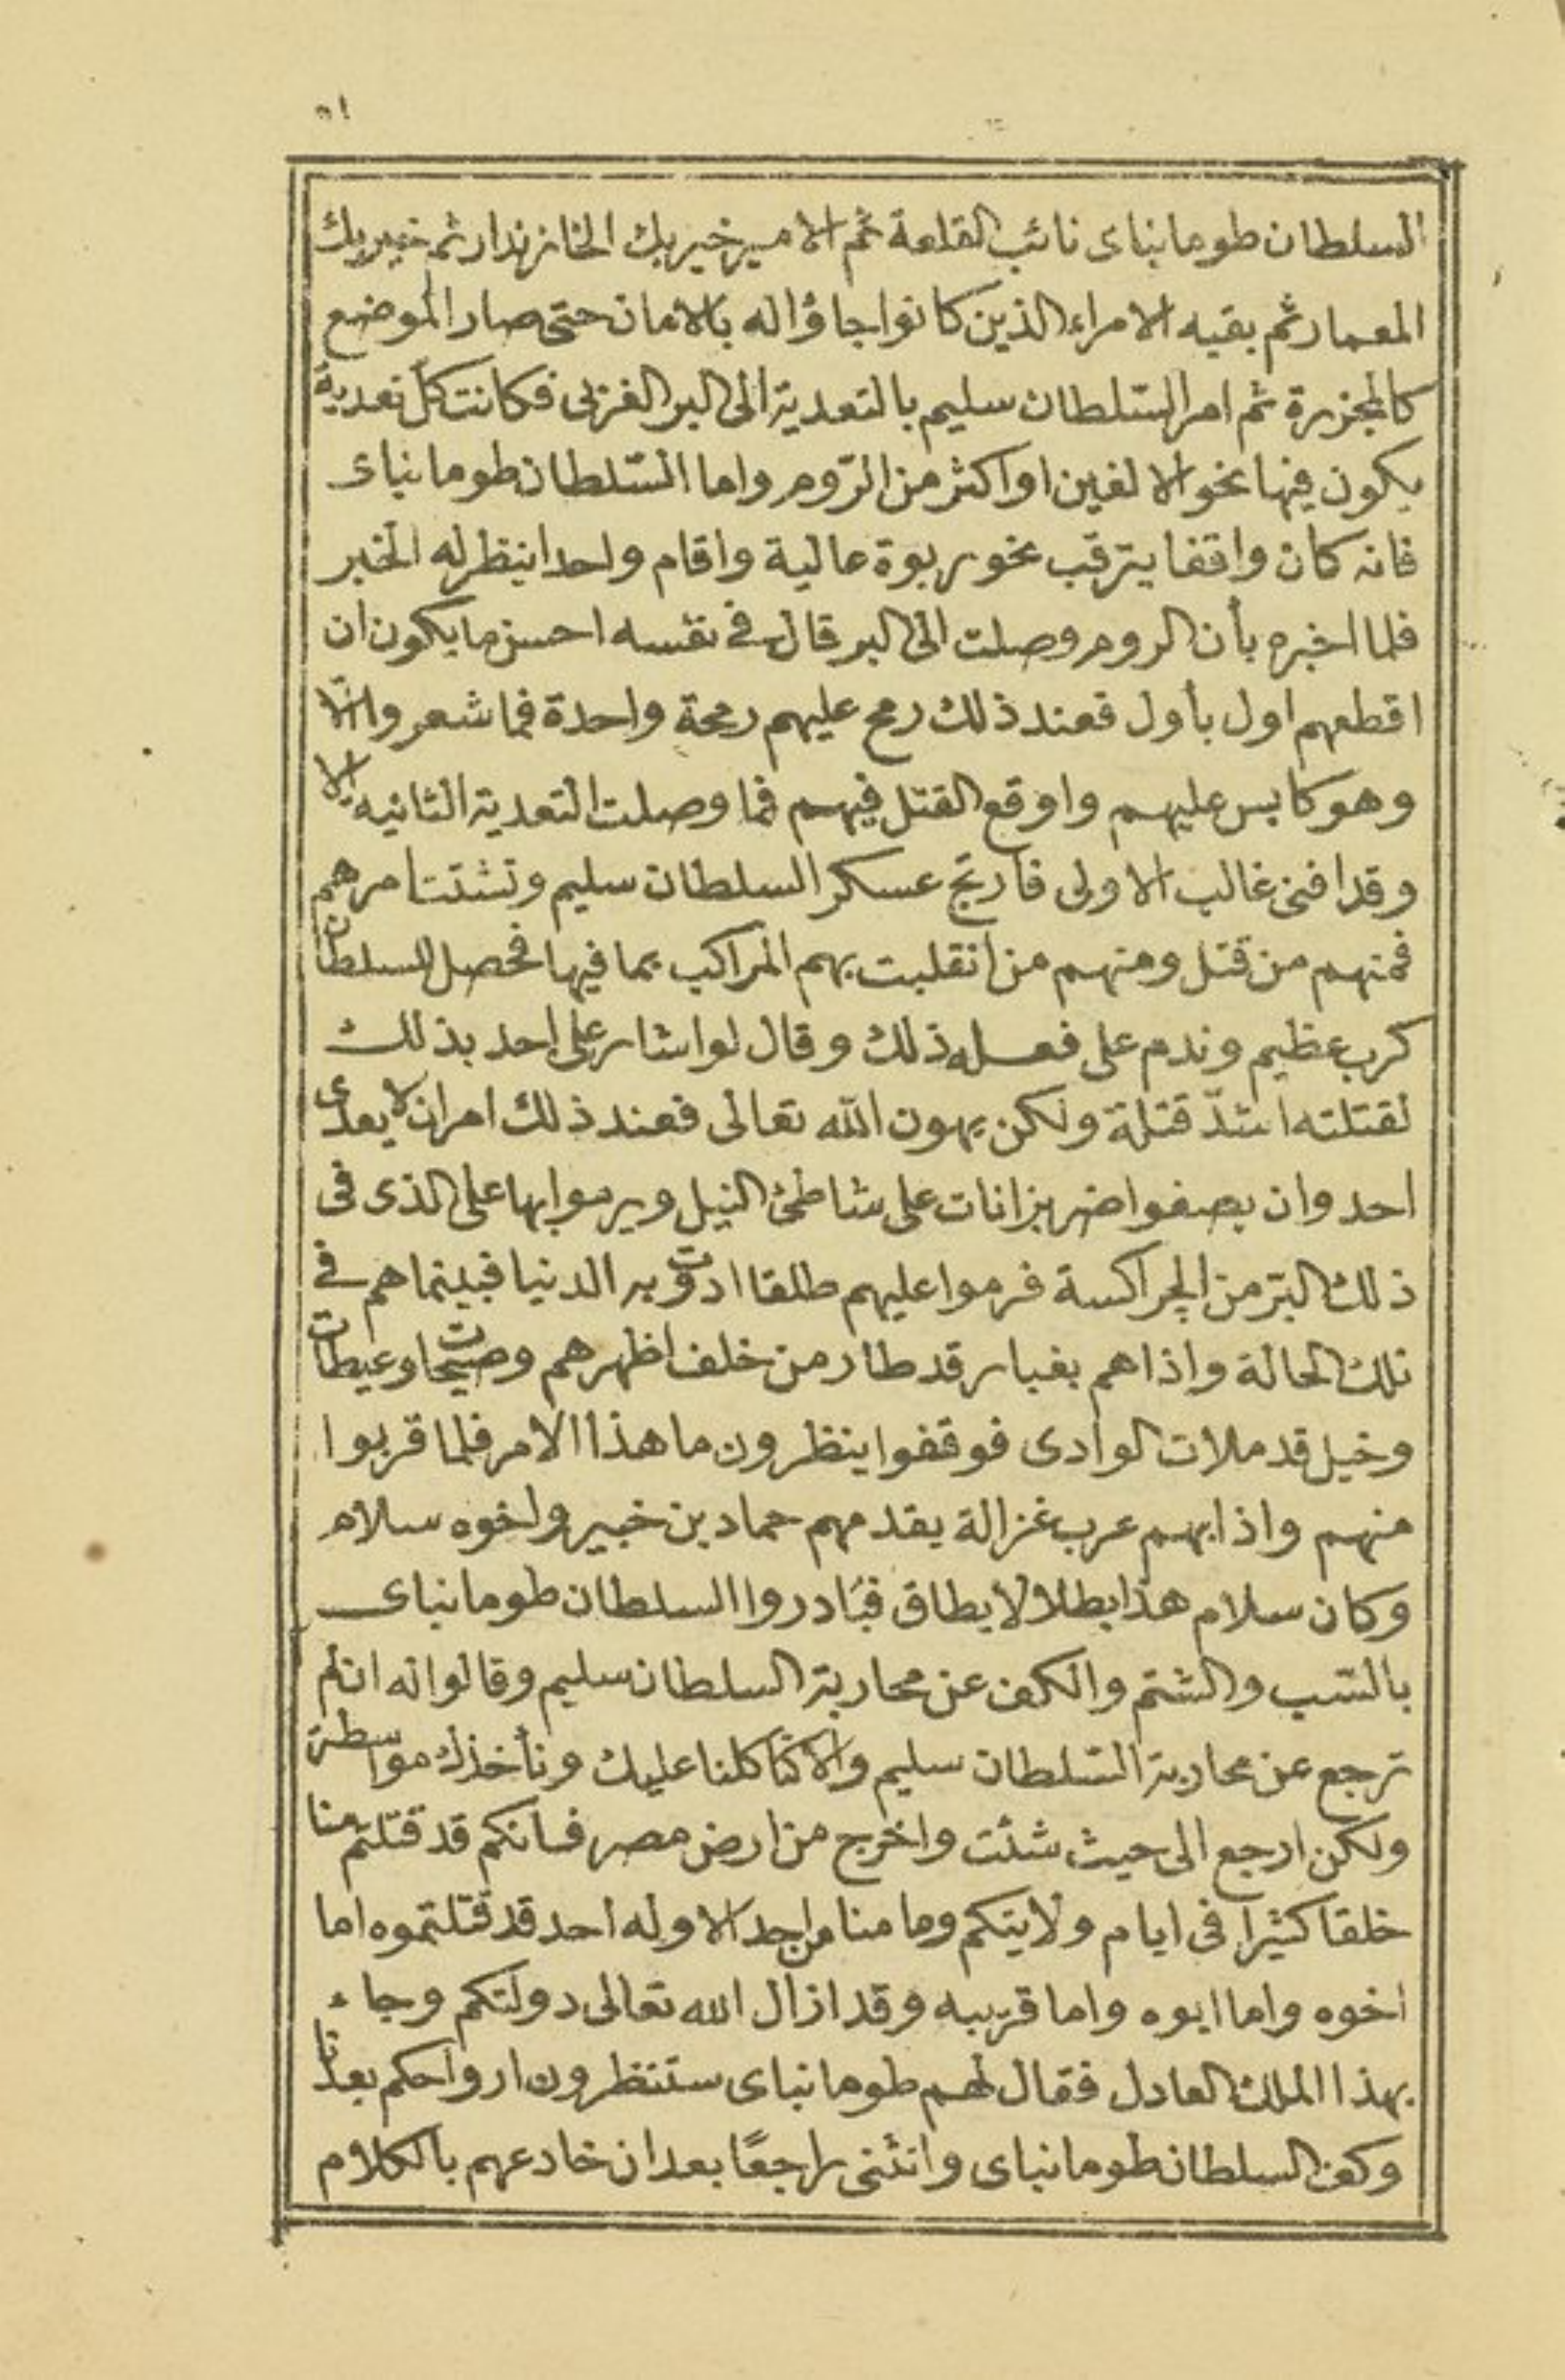 ٥١
السلطان طومانباى نائب القلعة ثم الامير خير بك الخازندار ثم خير بك
المعمار ثم بقيه الامراء الذين كانوا جاؤاله بالامان حتى صار الموضع
كالمجزرة ثم امر السّلطان سليم بالتعدية الى البر الغربى فكانت كلّ تعديةً
يكون فيها نحو الالفين او اكثر من الرّوم واما السّلطان طومانباى
فانه كان واقفا يترقب نحو ربوة عالية واقام واحدا ينظر له الخبر
فلما اخبره بأن الروم وصلت الى البر قال فى نفسه احسن ما يكون ان
اقطعهم اول بأول فعند ذلك رمح عليهم رمحة واحدة فما شعروا الّا
وهو كابس عليهم واوقع القتل فيهم فما وصلت التعدية الثانيه الا
وقد افنى غالب الاولى فارتج عسكر السلطان سليم وتشتت امرهم
فمنهم من قتل ومنهم من انقلبت بهم المراكب بما فيها فحصل للسلطان
كرب عظيم وندم على فعله ذلك وقال لو اشار على احد بذلك
لقتلته اشدّ قتلة ولكن يهون الله تعالى فعند ذلك امر ان لا يعدى
احد وان يصفوا ضربزانات على شاطئ النيل ويرموا بها على الذى فى
ذلك البرّ من الجراكسة فرموا عليهم طلقا ادوت به الدنيا فبينما هم فى
تلك الحالة واذا هم بغبار قد طار من خلف اظهرهم وصيحات وعيطات
وخيل قد ملات الوادى فوقفوا ينظرون ما هذا الامر فلما قربوا
منهم واذا بهم عرب غزالة يقدمهم حماد بن خبير واخوه سلام
وكان سلام هذا بطلا لا يطاق فبَادروا السلطان طومانباى
بالسّب والشتم والكف عن محاربة السلطان سليم وقالوا له ان لم
ترجع عن محاربة السّلطان سليم والا كنا كلنا عليك ونأخذك مواسطة
ولكن ارجع الى حيث شئت واخرج من ارض مصر فانكم قد قتلتم منا
خلقا كثيرا فى ايام ولايتكم وما منا من احد الا وله احد قد قتلتموه اما
اخوه واما ابوه واما قريبه وقد ازال الله تعالى دولتكم وجاء
بهذا الملك العادل فقال لهم طومانباى ستنظرون ارواحكم بعدنا
وكف السلطان طومانباى وانثنى راجعًا بعد ان خادعهم بالكلام